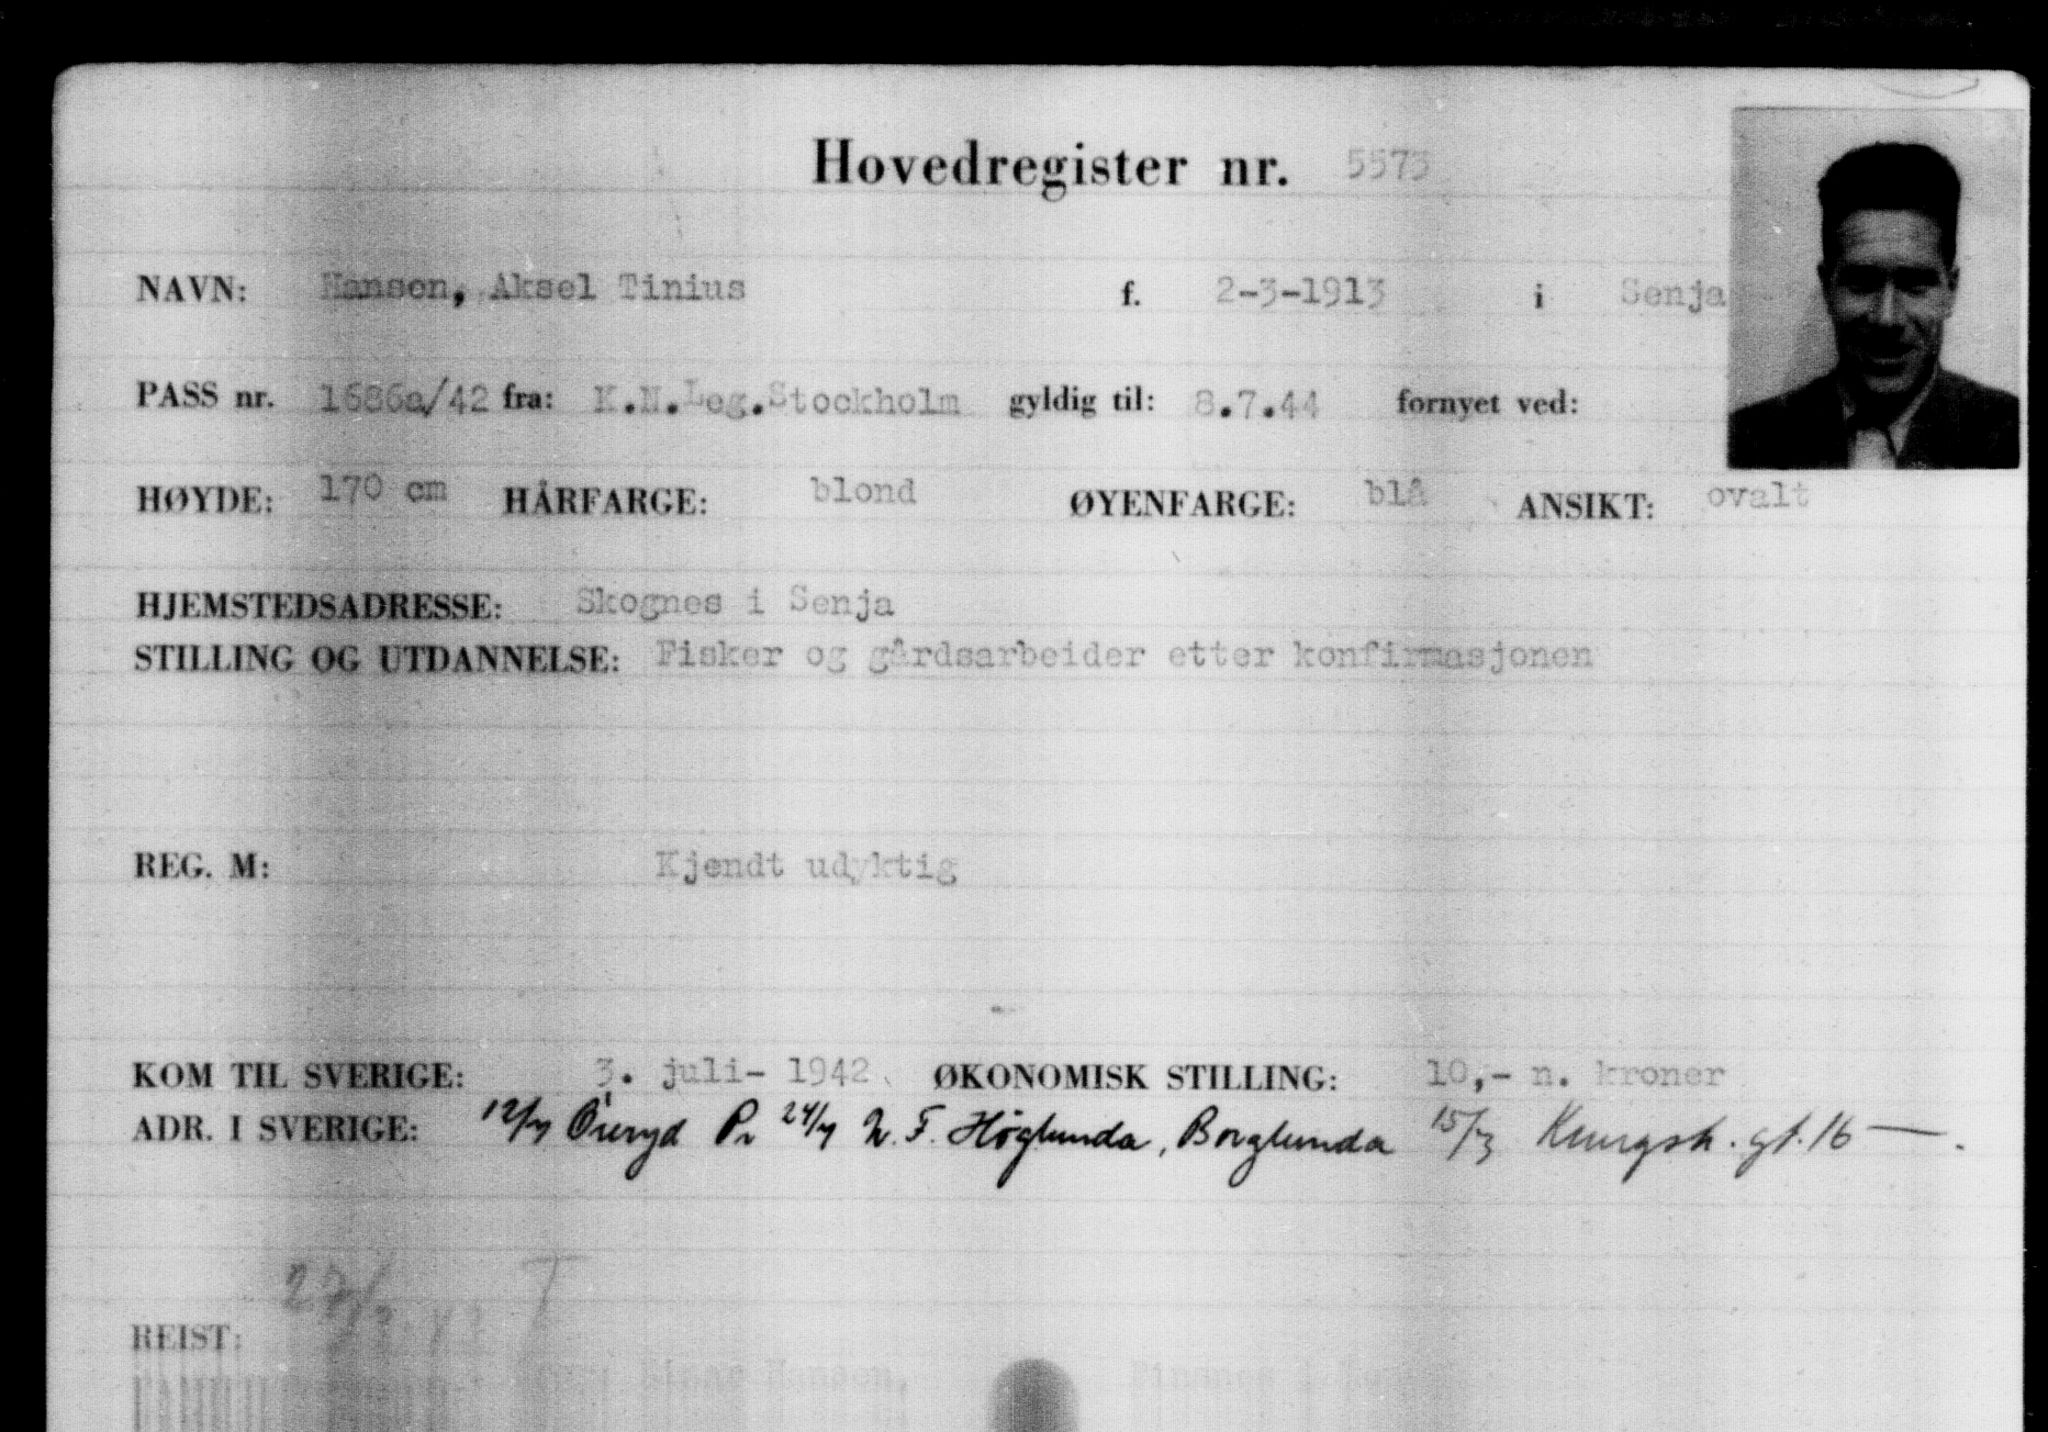 Hovedregister nr. 5573
NAVN: Hansen, Aksel Tinius f. 2-3-1913 i Senja
PASS nr. 1686a/42 fra: K.N.Leg.Stockholm gyldig til: 8.7.44 fornyet ved:
HØYDE: 170 cm HÅRFARGE: blond ØYENFARGE: blå ANSIKT: ovalt
HJEMSTEDSADRESSE: Skognes i Senja
STILLING OG UTDANNELSE: Fisker og gårdsarbeider etter konfirmasjonen
REG. M: Kjendt udyktig
KOM TIL SVERIGE: 3. juli- 1942 ØKONOMISK STILLING: 10,- n. kroner
ADR. I SVERIGE: 12/7 Öreryd Pr 24/7 N. F. Høglunda, Borglunda 15/3 Kungsh. gt. 16 —.
T
REIST: